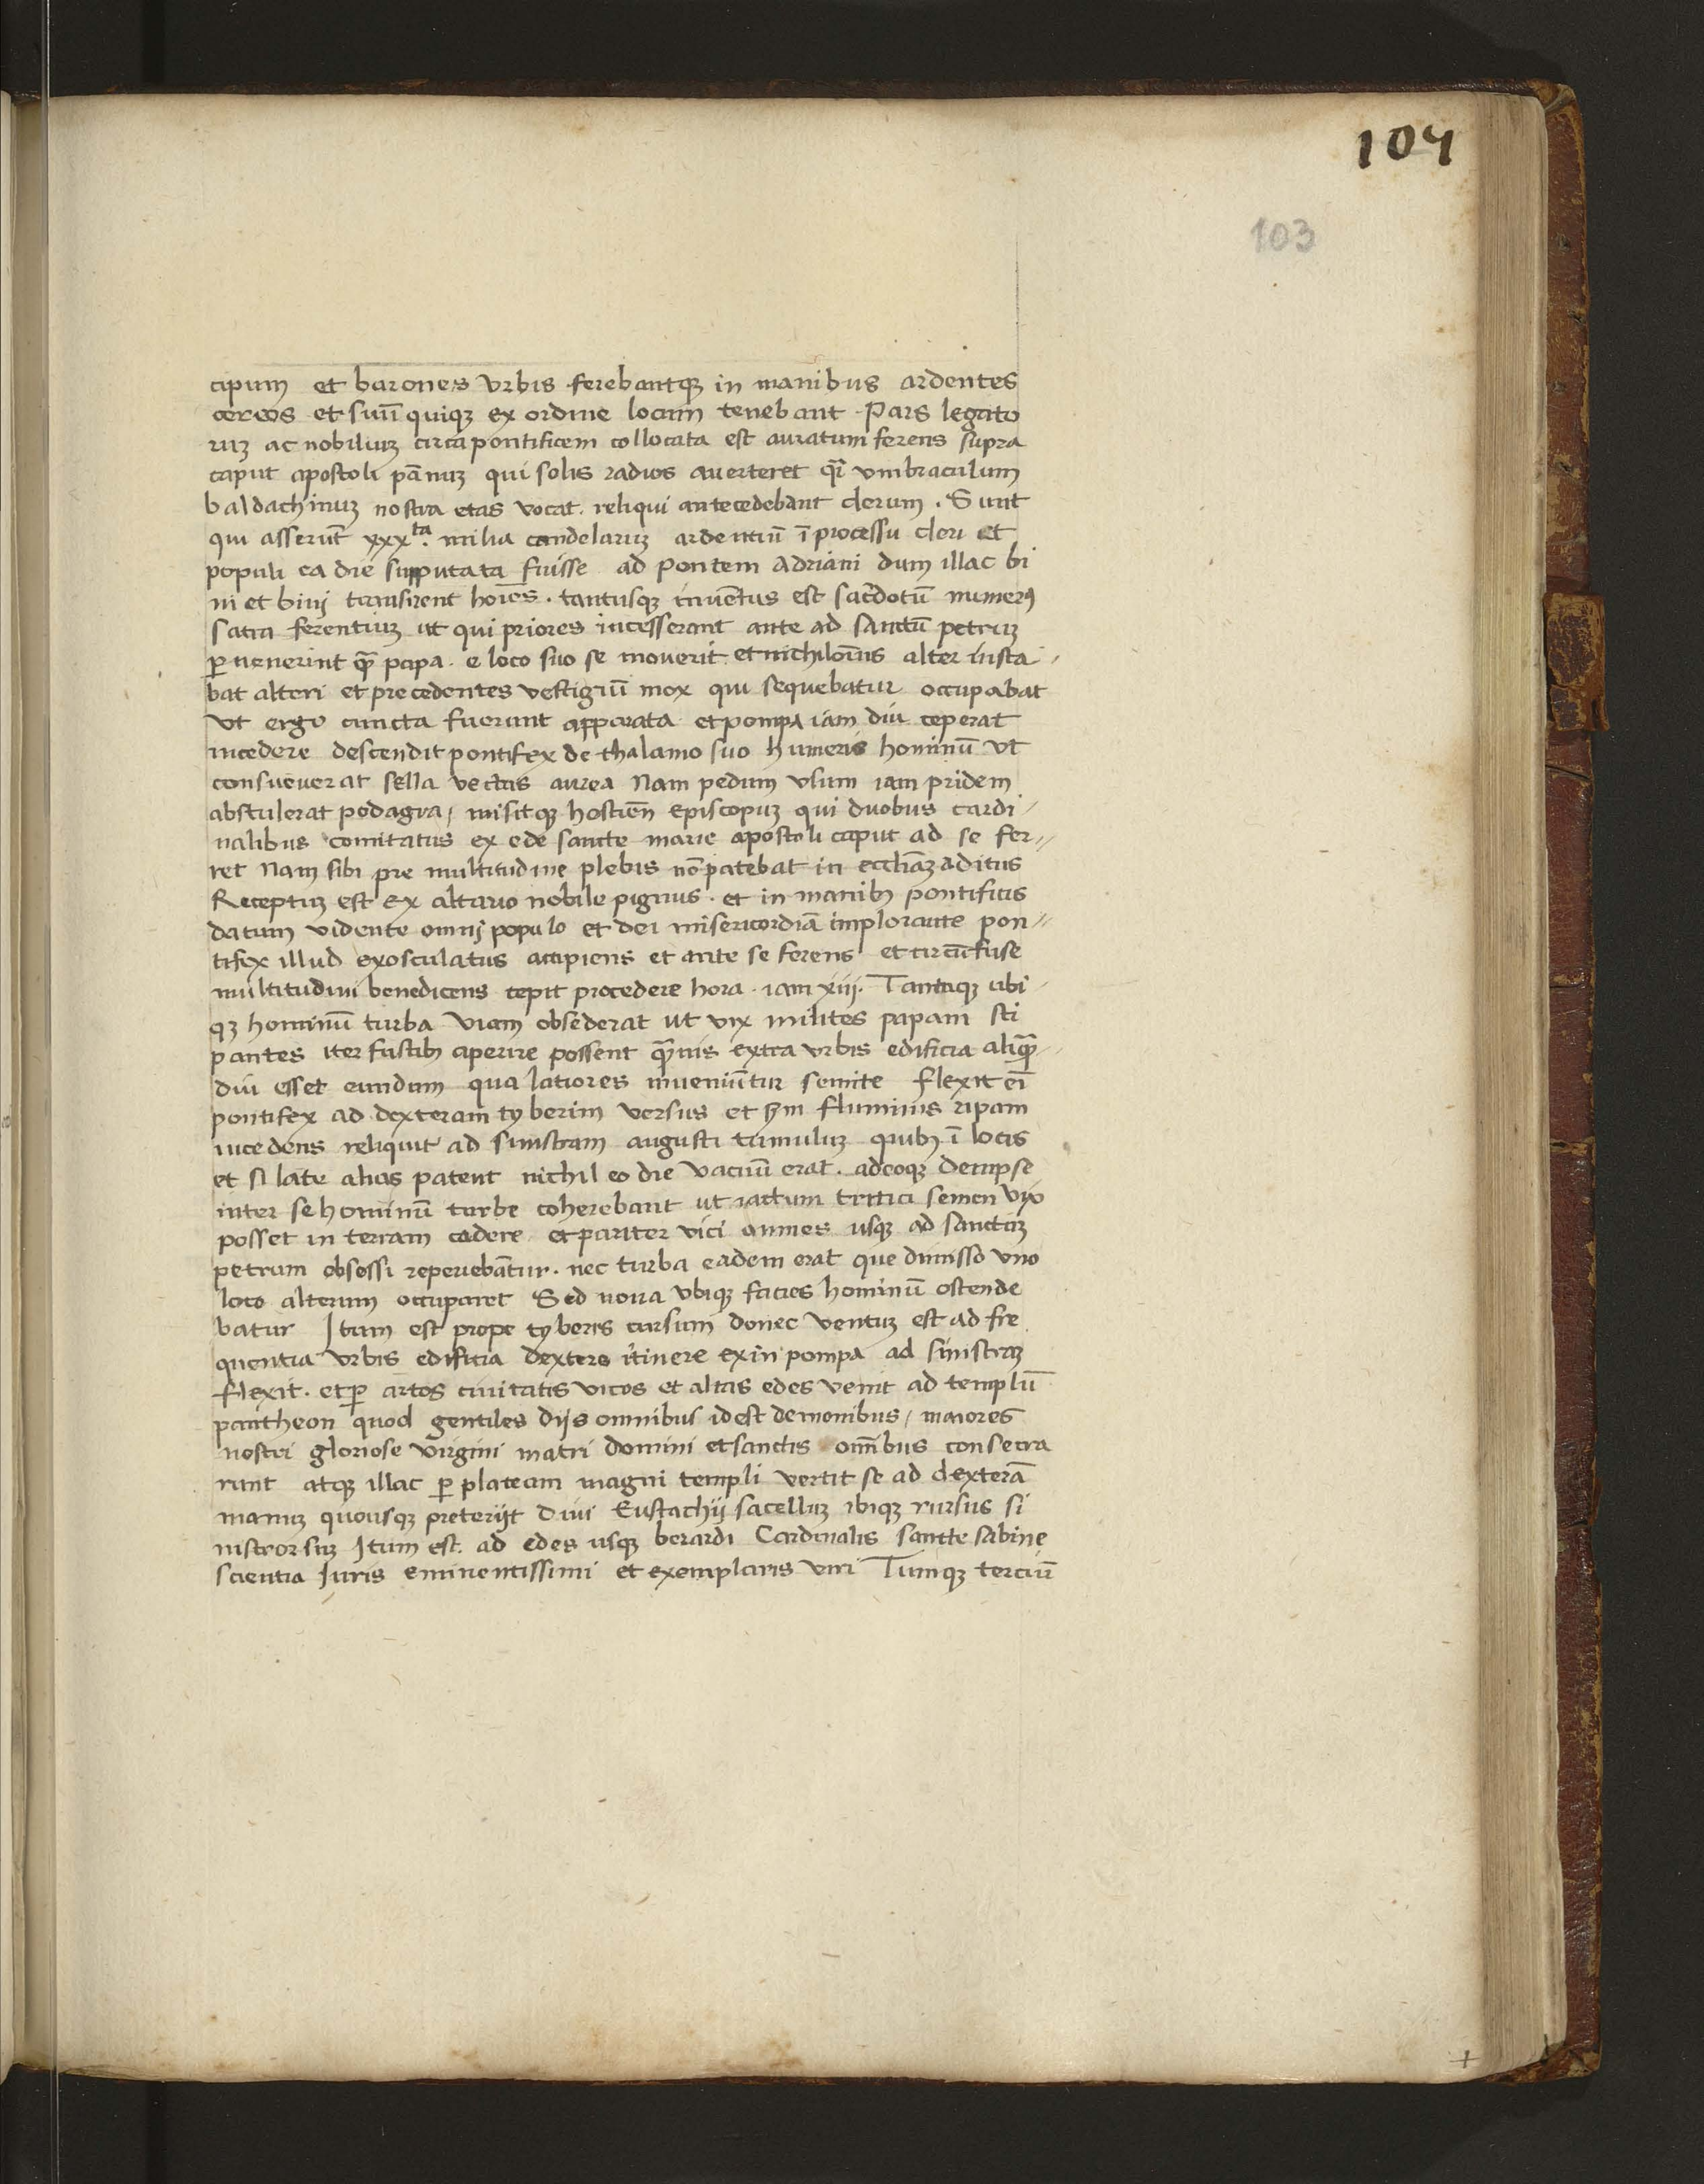 104
103
cipum et barones vrbis ferebantqꝫ in manibus ardentes
cereos et suū quiqꝫ ex ordine locum tenebant Pars legato
ruꝫ ac nobiliuꝫ circa pontificem collocata est auratum ferens supra
caput apostoli pānuꝫ qui solis radios auerteret qr̄ vmbraculum
baldachinuꝫ nostra etas vocat. reliqui antecedebant clerum. Sunt
qui asserūt xxxta. milia candelaruꝫ ardentiū ī processu cleri et
populi ea die supputata fuisse ad Pontem Adriani dum illac bi
ni et binj transirent hoīes. tantusqꝫ inuētus est sac̄dotū numerꝰ
sacra ferentiuꝫ ut qui priores incesserant ante ad sanctū petruꝫ
ꝑuenerint qꝫ̄ papa. e loco suo se mouerit et nichilomīs alter insta-
bat alteri et precedentes vestigiū mox qui sequebatur occupabat
Vt ergo cuncta fuerunt apparata et pompa iam diu ceperat
incedere descendit pontifex de thalamo suo humeris hominū vt
consueuerat sella vectus aurea Nam pedum vsum iam pridem
abstulerat podagra, misitqꝫ hostien̄ Episcopuꝫ qui duobus cardi-
nalibus comitatus ex ede sancte marie apostoli caput ad se fer-
ret Nam sibi pre multitudine plebis nō patebat in eccliāꝫ aditus
Receptuꝫ est ex altario nobile pignus. et in manibꝫ pontificis
datum vidente omnj populo et dei misericordiā implorante pon-
tifex illud exosculatus accipiens et ante se ferens et circūfuse
multitudini benedicens cepit procedere hora. iam xiij. Tantaqꝫ ubi-
qꝫ hominū turba viam obsederat ut vix milites papam sti
pantes iter fustibꝫ aperire possent qꝫ̄uis extra vrbis edificia aliqꝫ̄-
diu esset eundum qua latiores inueniūtur semite flexit eī
pontifex ad dexteram tyberim versus et scd̄m fluminis ripam
incedens reliquit ad sinistram augusti tumuluꝫ quibꝫ ī locis
et si late alias patent nichil eo die vacuū erat. adeoqꝫ dempse
inter se hominū turbe coherebant ut iactum tritici semen vix
posset in terram cadere et pariter vici omnes usqꝫ ad sanctuꝫ
petrum obsessi reperiebātur. nec turba eadem erat que dimisso vno
loco alterum occuparet Sed noua vbiqꝫ facies hominū ostende
batur Itum est prope tyberis cursum donec ventuꝫ est ad fre
quentia vrbis edificia dextero itinere exin pompa ad sinistraꝫ
flexit. et ꝑ artos ciuitatis vicos et altas edes venit ad templū
pantheon quod gentiles dijs omnibus idest demonibus, maiores
nostri gloriose virgini matri domini et sanctis om̄ibus consecra
runt atqꝫ illac ꝑ plateam magni templi vertit se ad dexterā
manuꝫ quousqꝫ preterijt Diui Eustachij sacelluꝫ ibiqꝫ rursus si
nistrorsuꝫ Itum est. ad edes usqꝫ berardi Cardinalis sancte sabine
scientia Iuris eminentissimi et exemplaris viri Tumqꝫ terciū